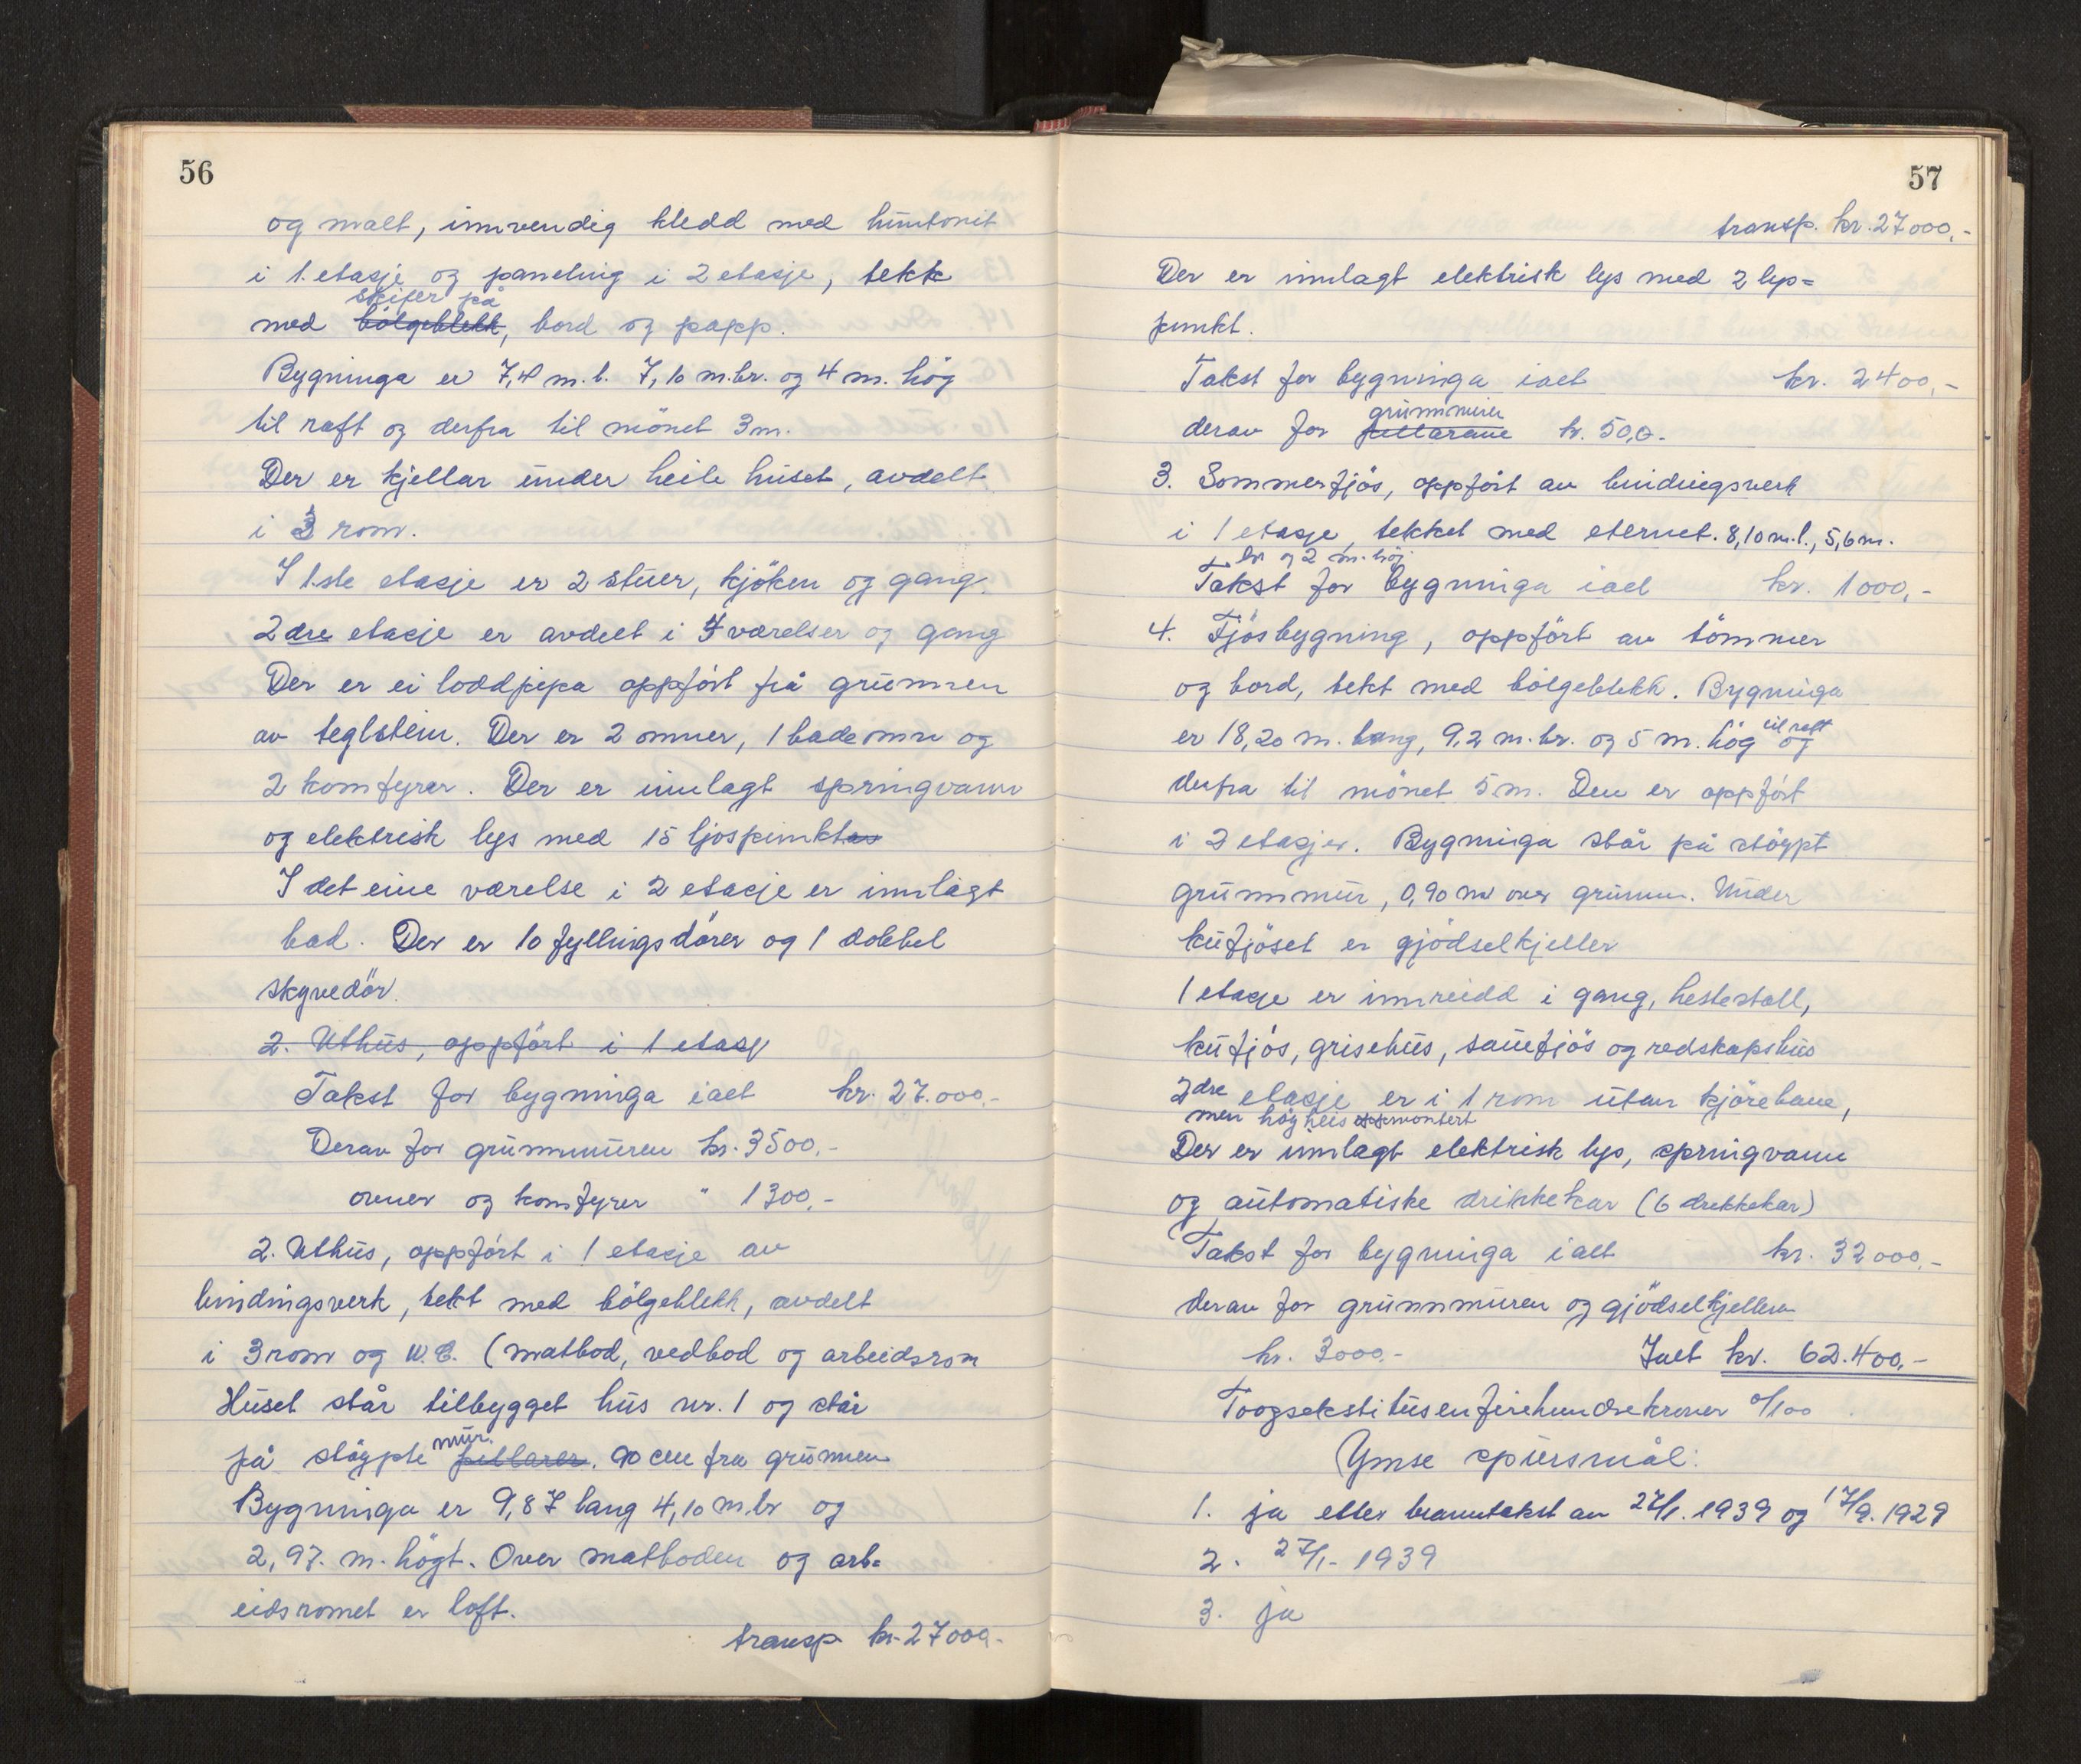 56
og malt, innvendig kledd med huntonit
i 1. etasje og paneling i 2 etasje, tekk
skifer på
med bölgeblekk, bord og papp.
Bygninga er 7,4 m. l. 7,10 m.br. og 4 m. hög
til raft og derfra til mönet 3 m.
Der er kjellar under heile huset, avdelt
i 3 rom.
I 1.ste etasje er 2 stuer, kjöken og gang.
2dre etasje er avdelt i 4 værelser og gang
Der er ei loddpipa oppfört frå grunnen
av teglstein. Der er 2 omner, 1 badeomn og
2 komfyrer. Der er innlagt springvann
og elektrisk lys med 15 ljospunktar
I det eine værelse i 2 etasje er innlagt
bad. Der er 10 fyllingsdörer og 1 dobbel
skyvedör.
2. Uthus, oppfört i 1 etasj
Takst for bygninga ialt kr. 27.000,-
Derav for grunnmuren kr. 3500,-
ovner og komfyrer " 1300,-
2. Uthus, oppfört i 1 etasje av
bindingsverk, tekt med bölgeblekk, avdelt
i 3 rom og W.C. (matbod, vedbod og arbeidsrom
Huset står tilbygget hus nr. 1 og står
mur.
på stöypte pillarer. 90 cm fra grunnen
Bygninga er 9,87 lang 4,10 m.br og
2,97. m. högt. Over matboden og arb=
eidsromet er loft.
transp kr. 27000.-
57
transp. kr. 27000,-
Der er innlagt elektrisk lys med 2 lys=
punkt.
Takst for bygninga ialt kr. 2400,-
grunnmuren
derav for pillarane kr. 500.-
3. Sommerfjös, oppfört av bindingsverk
i 1 etasje, tekket med eternit. 8,10 m.l., 5,6 m.
br og 2 m. hög
Takst for bygninga ialt kr. 1000,-
4. Fjösbygning, oppfört av tömmer
og bord, tekt med bölgeblekk. Bygninga
til raft
er 18,20 m. lang, 9,2 m. br. og 5 m. hög og
derfra til mönet 5 m. Den er oppfört
i 2 etasjer. Bygninga står på stöypt
grunnmur, 0,90 m over grunnen. Under
kufjöset er gjödselkjeller
1 etasje er innreidd i gang, hestestall,
kufjös, grisehus, sauefjös og redskapshus
2dre etasje er i 1 rom utan kjörebane,
men höyheis montert
Der er innlagt elektrisk lys, springvann
og automatiske drikkekar (6 drekkekar)
Takst for bygninga ialt kr. 32000,-
derav for grunnmuren og gjödselkjelleren
kr. 3000.- Ialt kr. 62.400,-
Toogsekstitusenfirehundrekroner 0/100
Ymse spursmål:
1. ja etter branntakst av 27/1. 1939 og 17/9. 1929
2. 27/1- 1939
3. ja